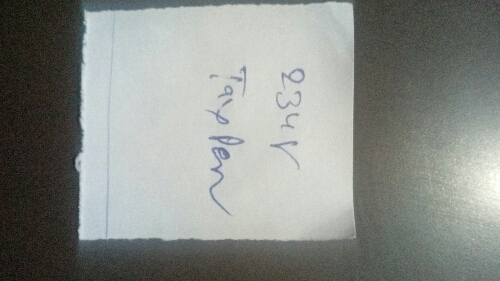 234V
Tax Pen